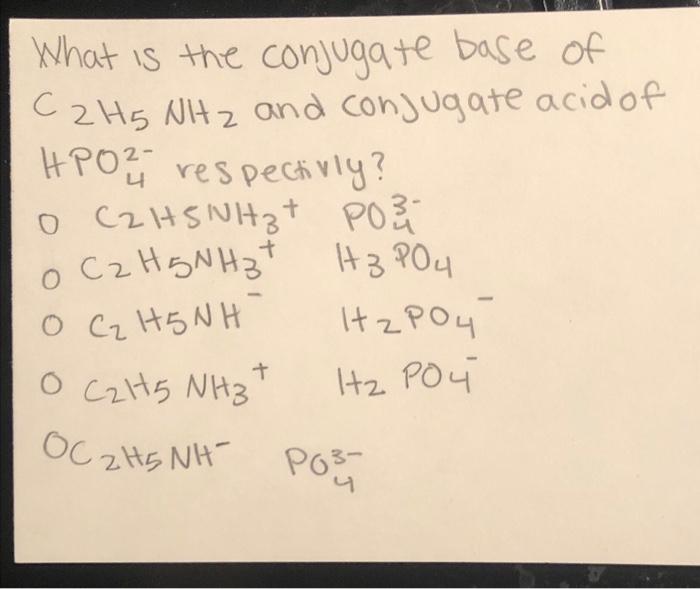 What is the conjugate base of
C2H5NH2 and conjugate acid of
HPO₄²⁻ respectivly?
O C2H5NH3⁺ PO₄³⁻
O C2H5NH3⁺ H3PO4
O C2H5NH⁻ H2PO4⁻
O C2H5NH3⁺ H2PO4⁻
O C2H5NH⁻ PO₄³⁻